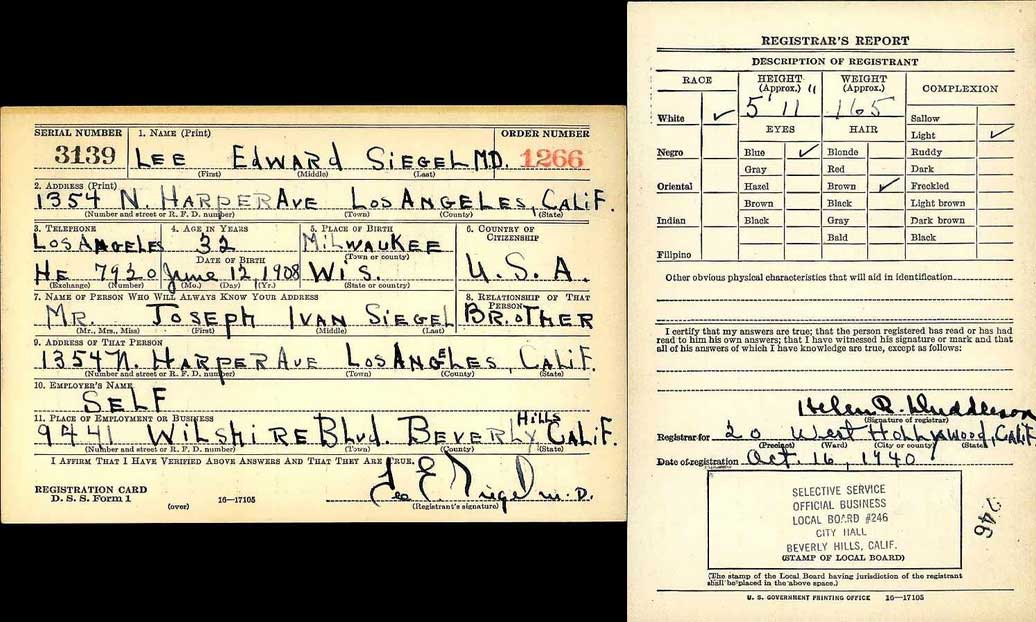 SERIAL NUMBER 1. NAME (Print) ORDER NUMBER
3139 LEE EDWARD SIEGEL M.D. 1266
(First) (Middle) (Last)
2. ADDRESS (Print)
1354 N. HARPER AVE LOS ANGELES, CALIF.
(Number and street or R. F. D. number) (Town) (County) (State)
3. TELEPHONE 4. AGE IN YEARS 5. PLACE OF BIRTH 6. COUNTRY OF CITIZENSHIP
LOS ANGELES 32 MILWAUKEE
DATE OF BIRTH (Town or county)
HE 7920 June 12, 1908 WIS. U.S.A.
(Exchange) (Number) (Mo.) (Day) (Yr.) (State or country)
7. NAME OF PERSON WHO WILL ALWAYS KNOW YOUR ADDRESS 8. RELATIONSHIP OF THAT PERSON
MR. JOSEPH IVAN SIEGEL BROTHER
(Mr., Mrs., Miss) (First) (Middle) (Last)
9. ADDRESS OF THAT PERSON
1354 N. HARPER AVE LOS ANGELES, CALIF.
(Number and street or R. F. D. number) (Town) (County) (State)
10. EMPLOYER'S NAME
SELF
11. PLACE OF EMPLOYMENT OR BUSINESS
9441 WILSHIRE BLVD. BEVERLY Hills CALIF.
(Number and street or R. F. D. number) (Town) (County) (State)
I AFFIRM THAT I HAVE VERIFIED ABOVE ANSWERS AND THAT THEY ARE TRUE.
Lee E. Siegel M.D.
REGISTRATION CARD
D. S. S. Form 1 16—17105 (Registrant's signature)
(over)
REGISTRAR'S REPORT
DESCRIPTION OF REGISTRANT
RACE HEIGHT (Approx.) WEIGHT (Approx.) COMPLEXION
White ✓ 5' 11" 165 Sallow
EYES HAIR Light ✓
Negro Blue ✓ Blonde Ruddy
Gray Red Dark
Oriental Hazel Brown ✓ Freckled
Brown Black Light brown
Indian Black Gray Dark brown
Bald Black
Filipino
Other obvious physical characteristics that will aid in identification
I certify that my answers are true; that the person registered has read or has had
read to him his own answers; that I have witnessed his signature or mark and that
all of his answers of which I have knowledge are true, except as follows:
Helen R. Huddleson
(Signature of registrar)
Registrar for 20 West Hollywood, Calif.
(Precinct) (Ward) (City or county) (State)
Date of registration Oct. 16, 1940
SELECTIVE SERVICE
OFFICIAL BUSINESS
LOCAL BOARD #246
CITY HALL
BEVERLY HILLS, CALIF.
(STAMP OF LOCAL BOARD)
246
(The stamp of the Local Board having jurisdiction of the registrant
shall be placed in the above space.)
U. S. GOVERNMENT PRINTING OFFICE 16—17105